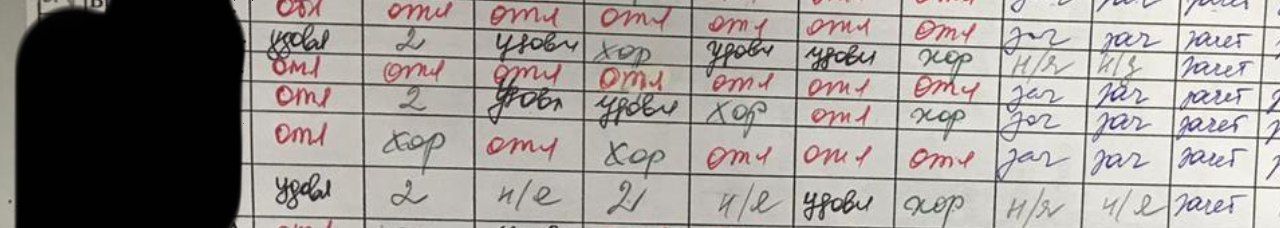 отл отл отл отл отл отл отл зач зач зачет
удовл 2 удовл хор удовл удовл хор зач зач зачет
отл отл отл отл отл отл отл н/я н/я зачет
отл 2 удовл удовл хор отл хор зач зач зачет
отл хор отл хор отл отл отл зач зач зачет
удовл 2 н/я 2 н/я удовл хор н/я н/я зачет